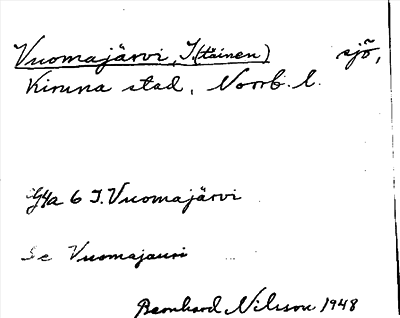 Vuomajärvi, I. (täinen) sjö,
Kiruna stad, Norrb. l.
4a 6 I. Vuomajärvi
Se Vuomajauri
Bernhard Nilsson 1948